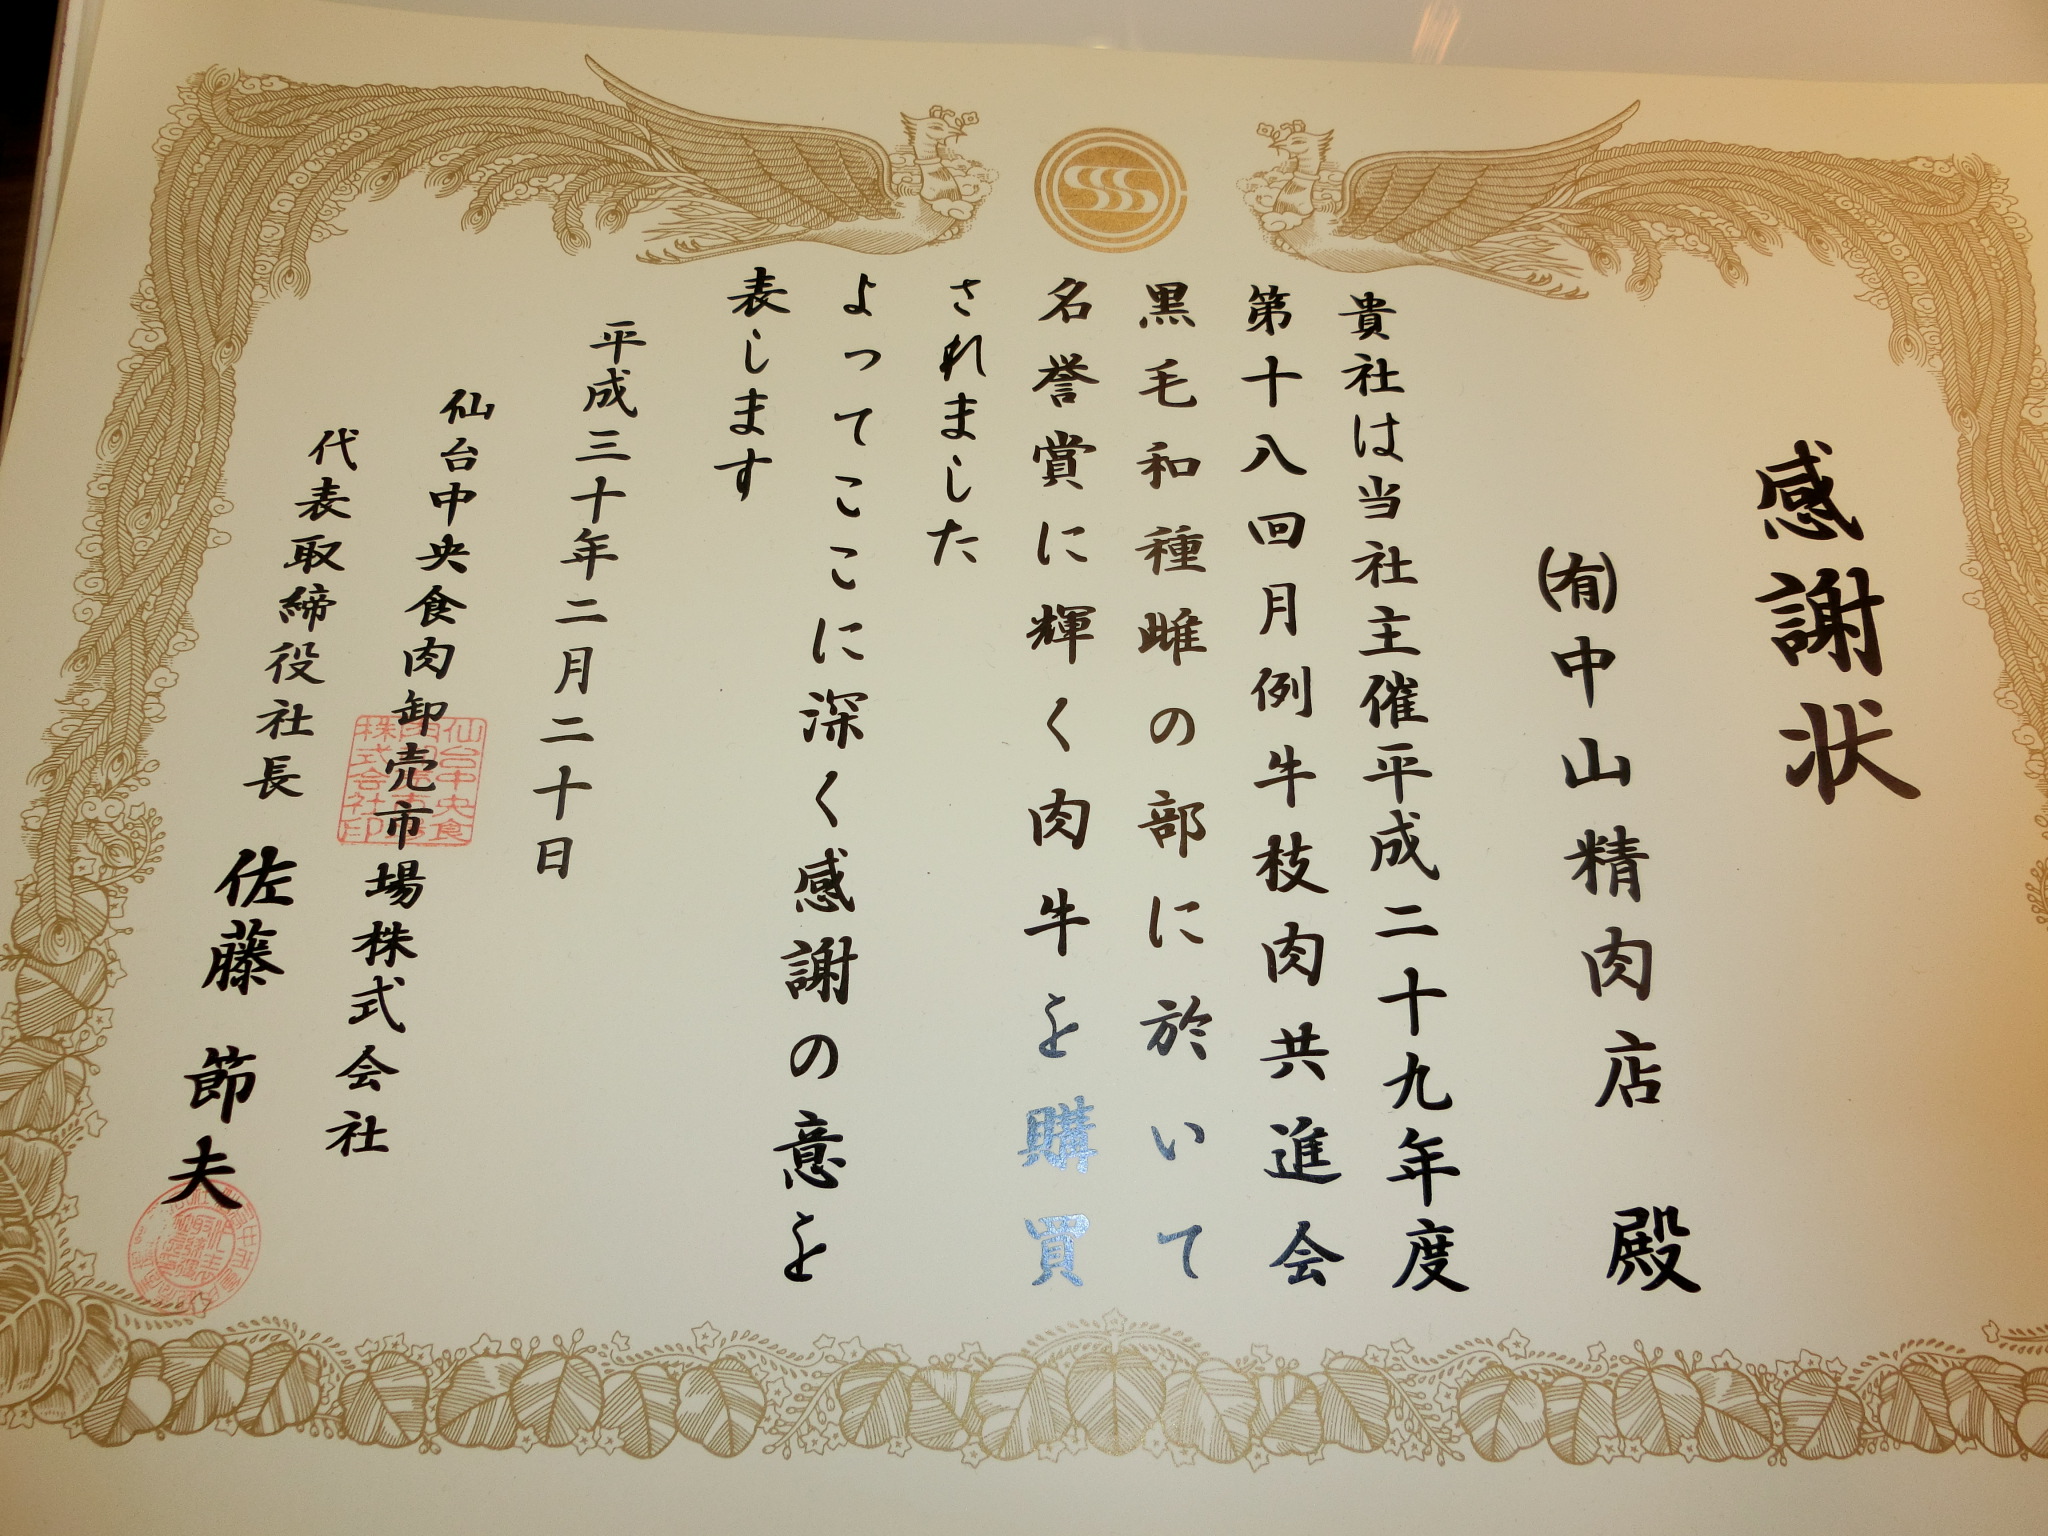 感謝状
(有)中山精肉店 殿
貴社は当社主催平成二十九年度
第十八回月例牛枝肉共進会
黒毛和種雌の部に於いて
名誉賞に輝く肉牛を購買
されました
よってここに深く感謝の意を
表します
平成三十年二月二十日
仙台中央食肉卸売市場株式会社
代表取締役社長 佐藤節夫